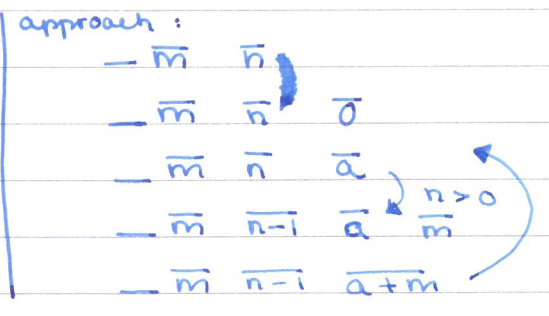 approach :
_ m̅ n̅
_ m̅ n̅ 0̅
_ m̅ n̅ a̅
n > 0
_ m̅ n̅-̅1̅ a̅ m̅
_ m̅ n̅-̅1̅ a̅+̅m̅